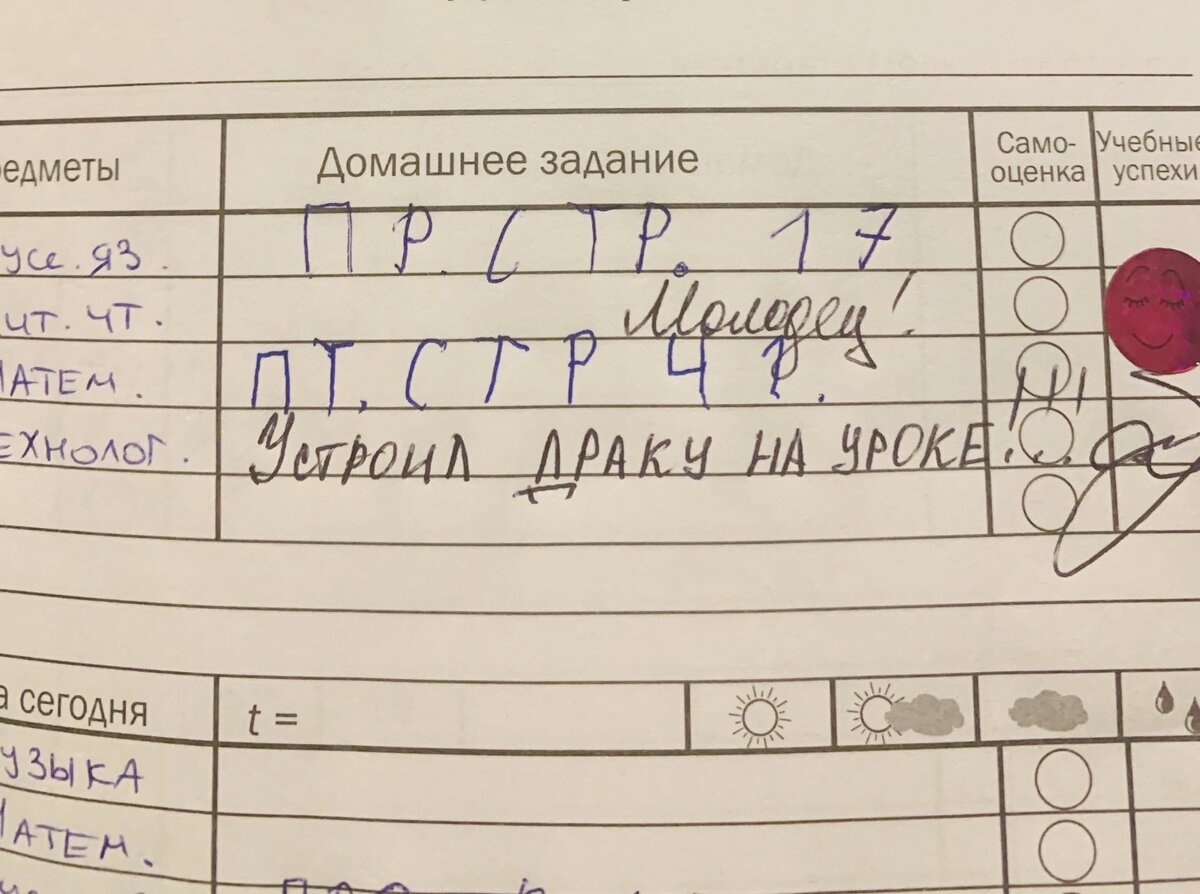 редметы Домашнее задание Само- Учебные
оценка успехи
усс. яз. ПР. СТР. 17
ит. чт. Молодец!
Матем. ПТ. СТР 4
ехнолог. Устроил драку на уроке!!!
а сегодня t =
узыка
Матем.